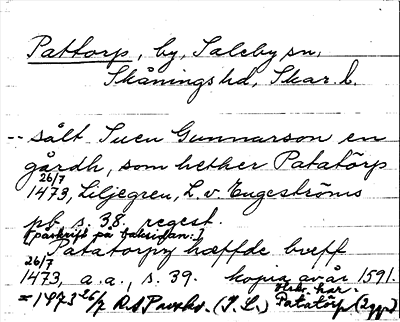 Pattorp, by, Saleby sn,
Skånings hd, Skar. l.
-- sålt Suen Gunnarson en
gårdh, som hether Patatörp
26/7
1473, Liljegren, L. v. Engeströms
pb s. 38. regest.
[påskrift på baksidan:]
Patatorpp haffde breff
26/7
1473, a.a., s. 39. kopia avår 1591.
=1473 26/7 RAPaukv. (T. L.) Patatörp (2 ggr)